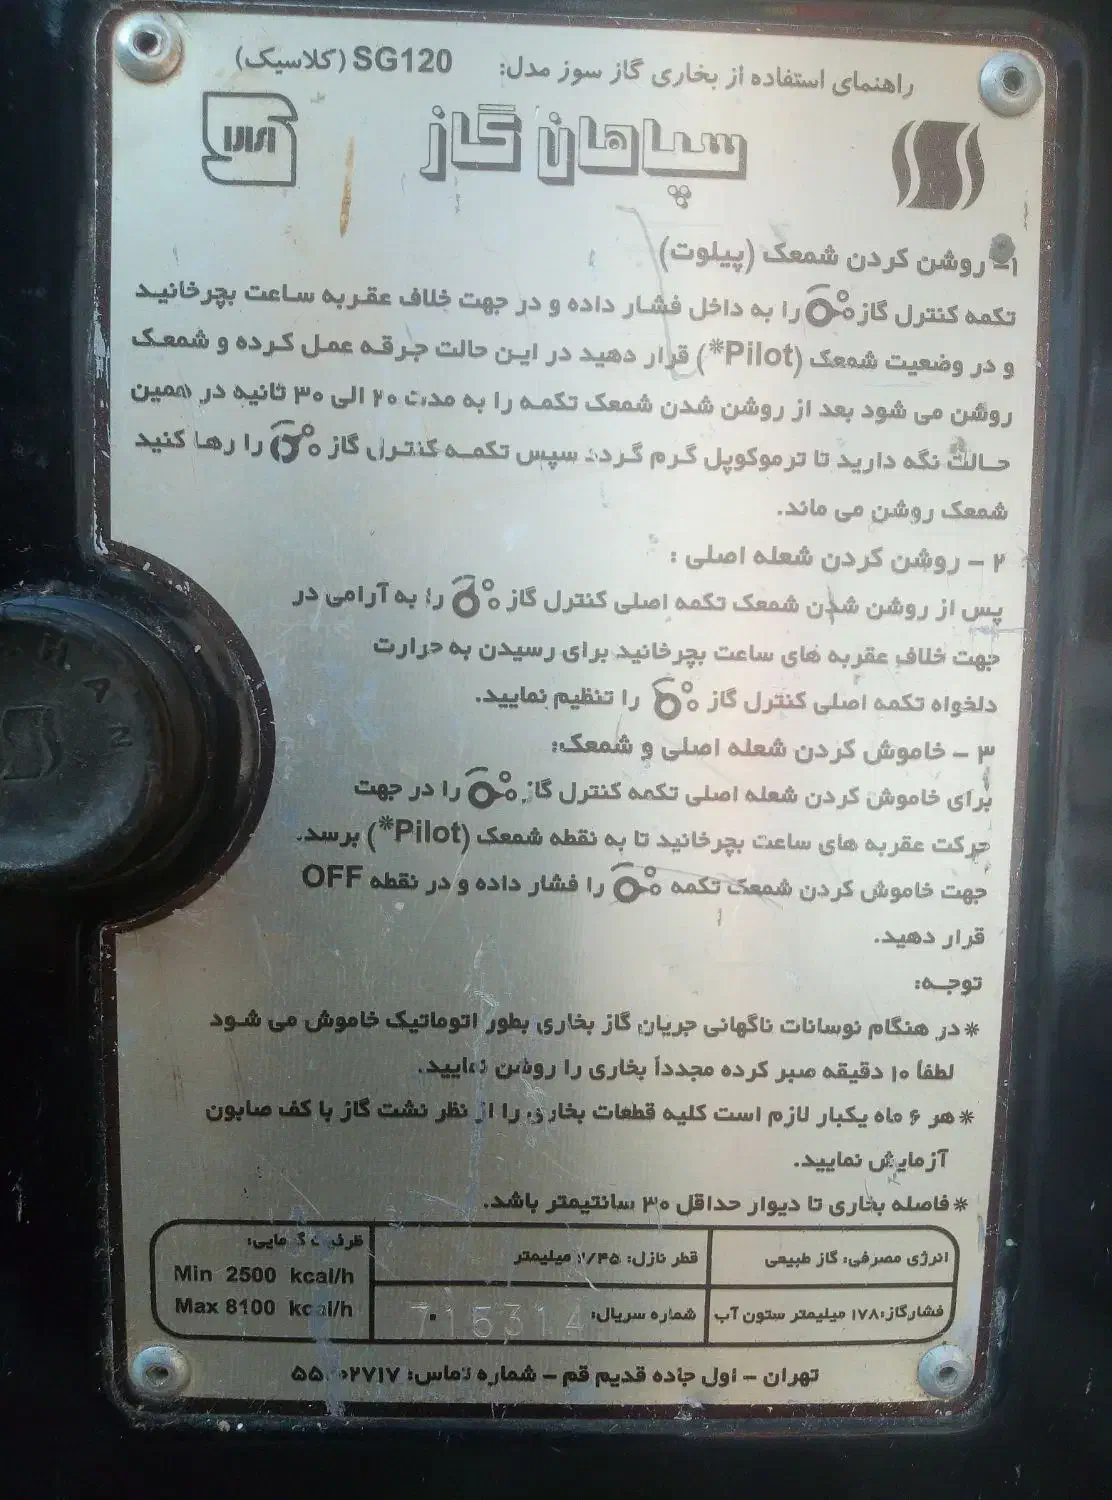 راهنمای استفاده از بخاری گاز سوز مدل: SG120 (کلاسیک)
سپاهان گاز
۱- روشن کردن شمعک (پیلوت)
تکمه کنترل گاز را به داخل فشار داده و در جهت خلاف عقربه ساعت بچرخانید
و در وضعیت شمعک (Pilot*) قرار دهید در این حالت جرقه عمل کرده و شمعک
روشن می شود بعد از روشن شدن شمعک تکمه را به مدت ۲۰ الی ۳۰ ثانیه در همین
حالت نگه دارید تا ترموکوپل گرم گردد سپس تکمه کنترل گاز را رها کنید
شمعک روشن می ماند.
۲ - روشن کردن شعله اصلی :
پس از روشن شدن شمعک تکمه اصلی کنترل گاز را به آرامی در
جهت خلاف عقربه های ساعت بچرخانید برای رسیدن به حرارت
دلخواه تکمه اصلی کنترل گاز را تنظیم نمایید.
۳ - خاموش کردن شعله اصلی و شمعک:
برای خاموش کردن شعله اصلی تکمه کنترل گاز را در جهت
حرکت عقربه های ساعت بچرخانید تا به نقطه شمعک (Pilot*) برسد.
جهت خاموش کردن شمعک تکمه را فشار داده و در نقطه OFF
قرار دهید.
توجه:
* در هنگام نوسانات ناگهانی جریان گاز بخاری بطور اتوماتیک خاموش می شود
لطفاً ۱۰ دقیقه صبر کرده مجدداً بخاری را روشن نمایید.
* هر ۶ ماه یکبار لازم است کلیه قطعات بخاری را از نظر نشت گاز با کف صابون
آزمایش نمایید.
* فاصله بخاری تا دیوار حداقل ۳۰ سانتیمتر باشد.
انرژی مصرفی: گاز طبیعی
قطر نازل: ۱/۴۵ میلیمتر
ظرفیت گرمایی:
Min 2500 kcal/h
Max 8100 kcal/h
فشار گاز: ۱۷۸ میلیمتر ستون آب
شماره سریال: 715314
تهران - اول جاده قدیم قم - شماره تماس:
HAN